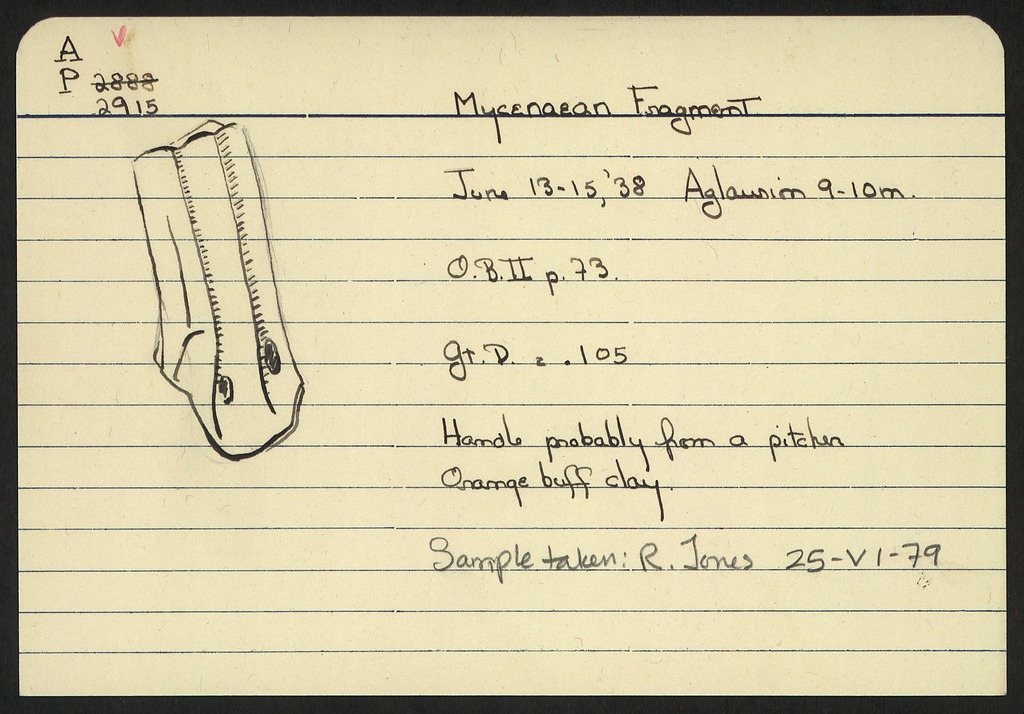 A
P 2888
2915
Mycenaean Fragment
June 13-15, '38 Aglaurion 9-10m.
O.B.II p.73.
Gt.D. = .105
Handle probably from a pitcher
Orange buff clay.
Sample taken: R. Jones 25-VI-79